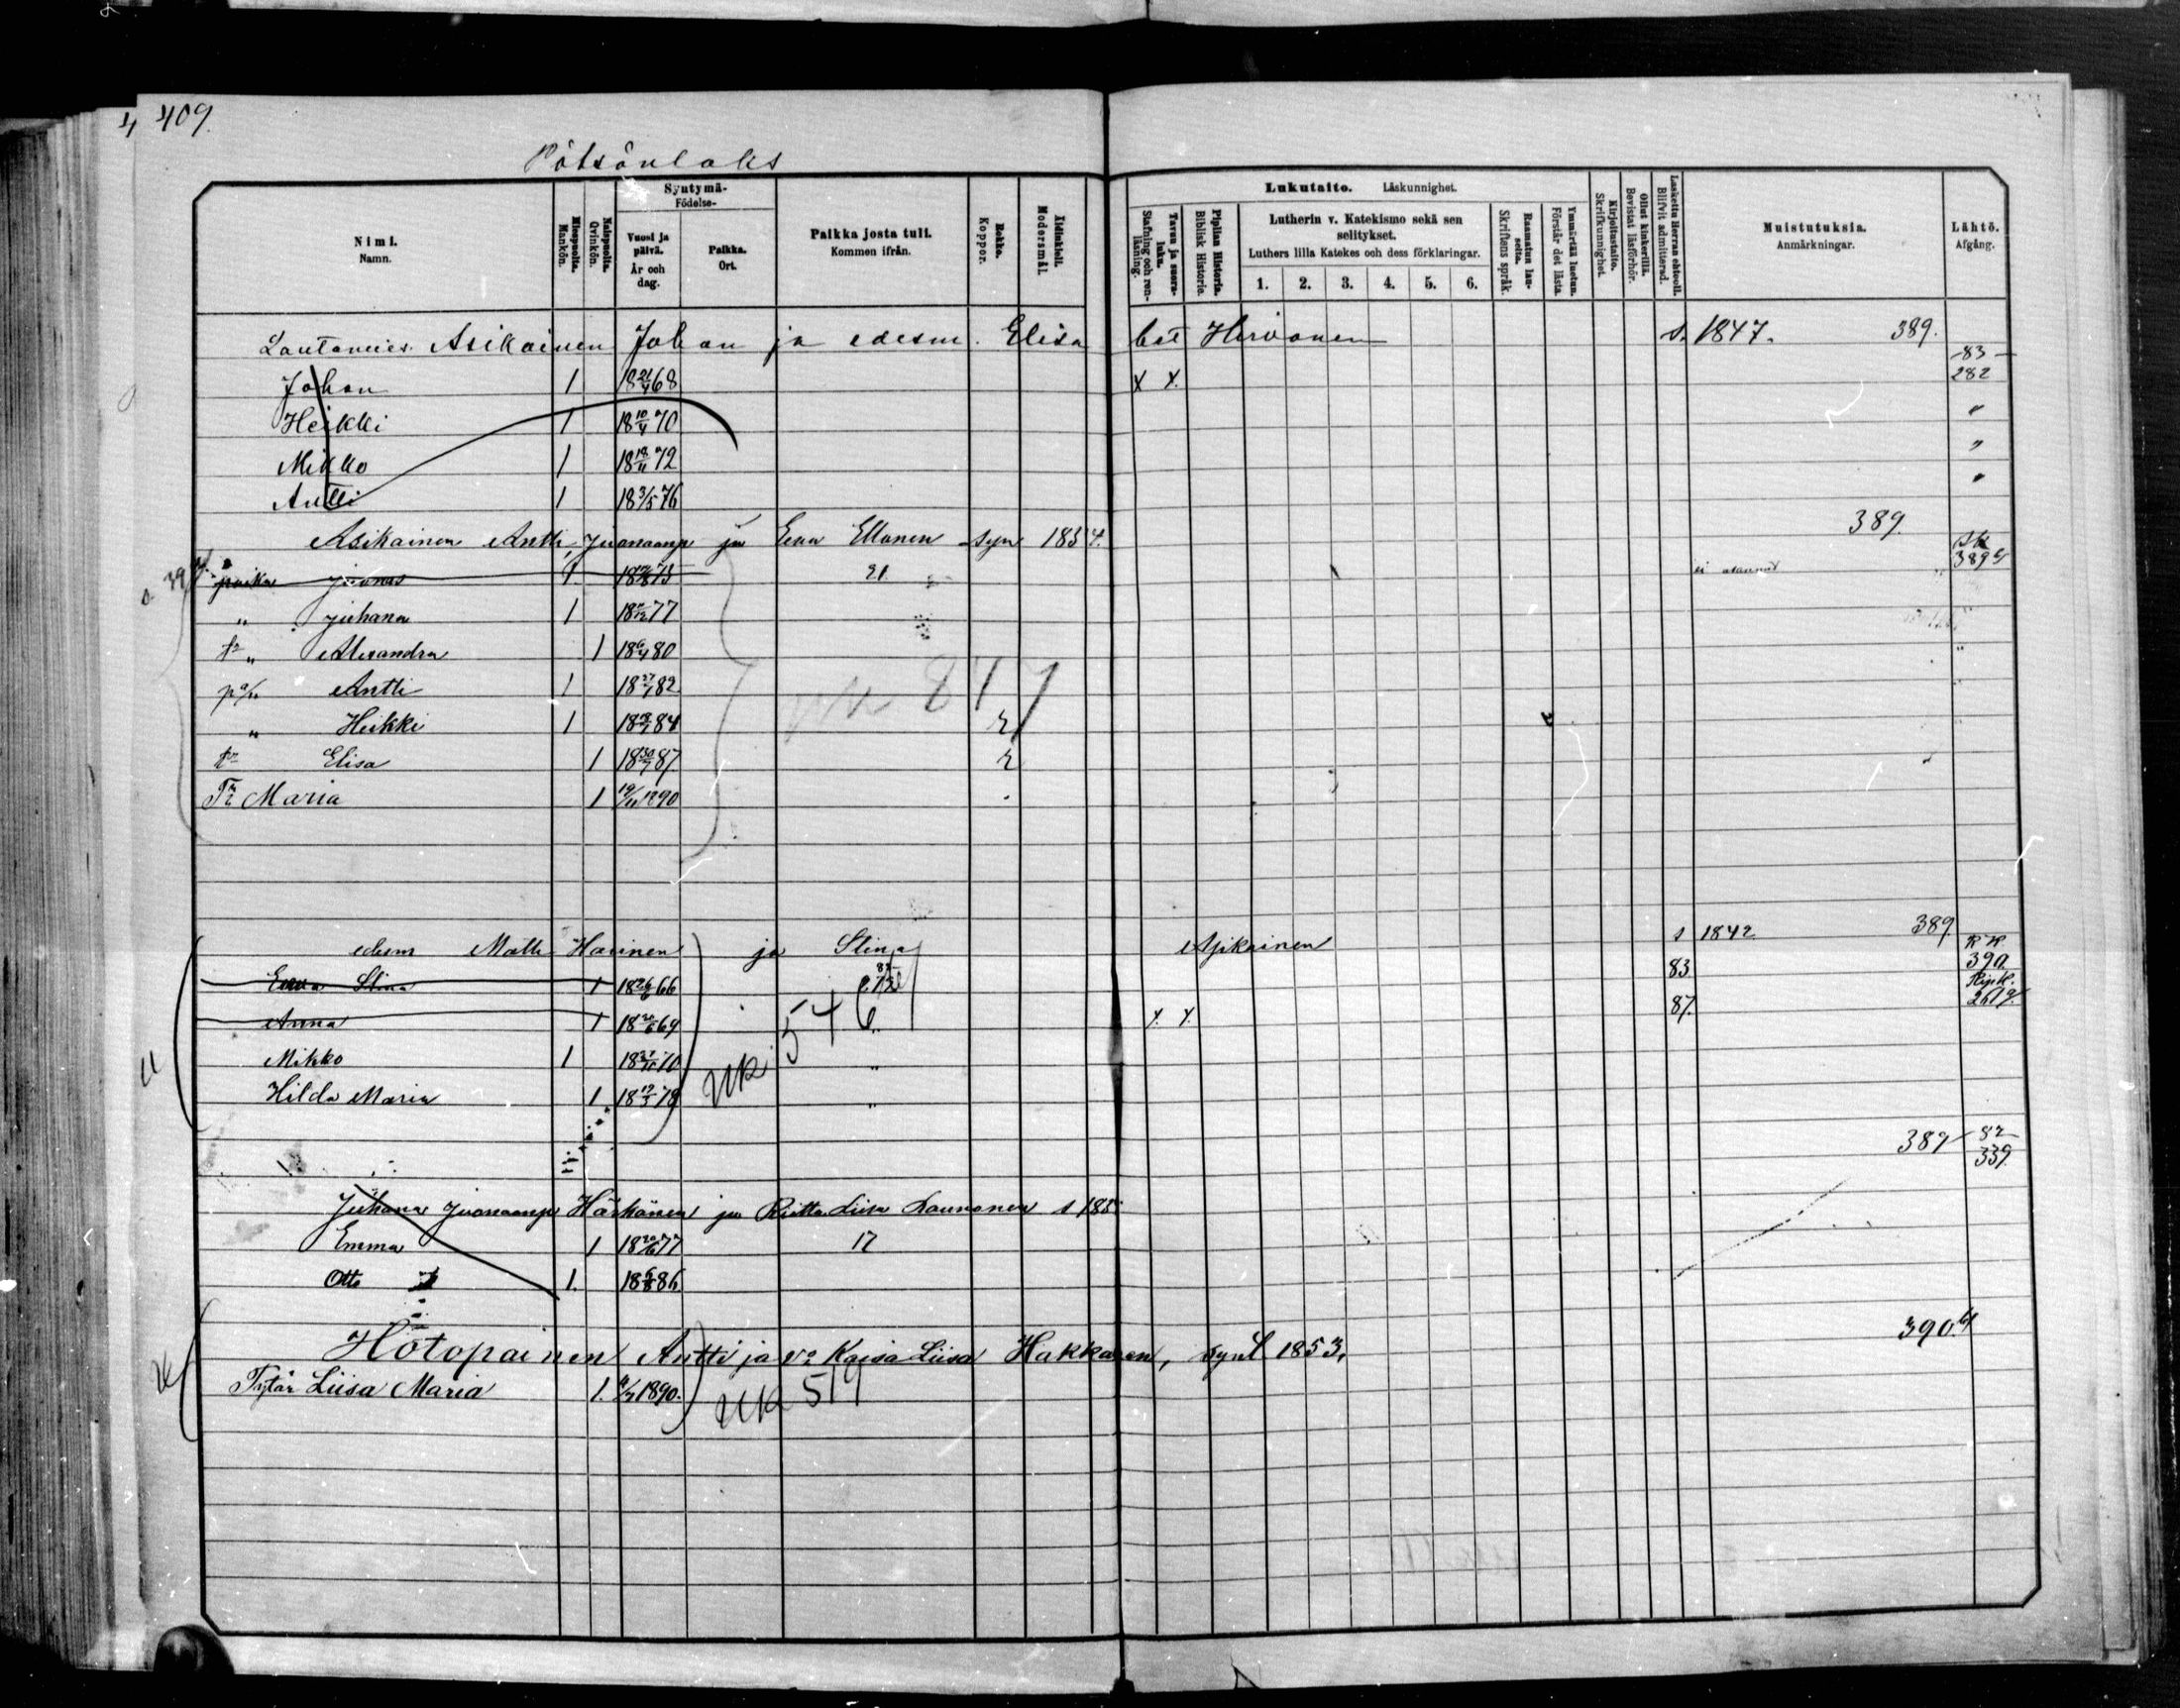 409
Pötsönlaks
Nimi. Namn.
Miespuolia. Mankön.
Naispuolia. Qvinkön.
Syntymä- Födelse-
Vuosi ja päivä. År och dag.
Paikka. Ort.
Paikka josta tuli. Kommen ifrån.
Rokko. Koppor.
Äidinkieli. Modersmål.
Lukutaito. Läskunnighet.
Tavuu ja suora-luku. Stafning och ren-läsning.
Piplian Historia. Biblisk Historie.
Lutherin v. Katekismo sekä sen selitykset.
Luthers lilla Katekes och dess förklaringar.
1. 2. 3. 4. 5. 6.
Raamatun lauseita. Skriftens språk.
Ymmärtää luetun. Förstår det lästa.
Kirjoitustaito. Skrifkunnighet.
Ollut kinkerillä. Bevistat läsförhör.
Laskettu Herran ehtooll. Blifvit admitterad.
Muistutuksia. Anmärkningar.
Lähtö. Afgång.
Lautamies Asikainen Johan ja edesm. Elisa Hirvonen s. 1847. 389.
Johan 1 18 21/4 68 x x 83 282
Heikki 1 18 10/4 70 "
Mikko 1 18 18/11 72 "
Antti 1 18 3/5 76 "
Asikainen Antti Juonaanp ja Eeva Ellonen syn 1854. 389.
poika Juonas 1 21 ei 389
" Juhana 1 77
tr " Alexandra 1 18 6/4 80 "
pa/" Antti 1 18 27/7 82 "
" Heikki 1 84 r
tr Elisa 1 18 30/7 87 r
Tr Maria 1 19/11 1890
847
edesm Matti Harinen ja Stina Asikainen s 1842 389
Eeva Stina 1 66 83 390
Anna 1 69 " x. x. 87. 2619
Mikko 1 70 "
Hilda Maria 1 18 12/3 78 "
UK 546
389 82 339
Juhana Juonaanp Härkönen ja Riitta Liisa Launonen s 185
Emma 1 18 20/6 77 17
Otto 1. 86.
390
Hötöpainen Antti ja vo Kaisa Liisa Hakkaren, synt 1853,
Tytär Liisa Maria 1. 1890.
UK 519